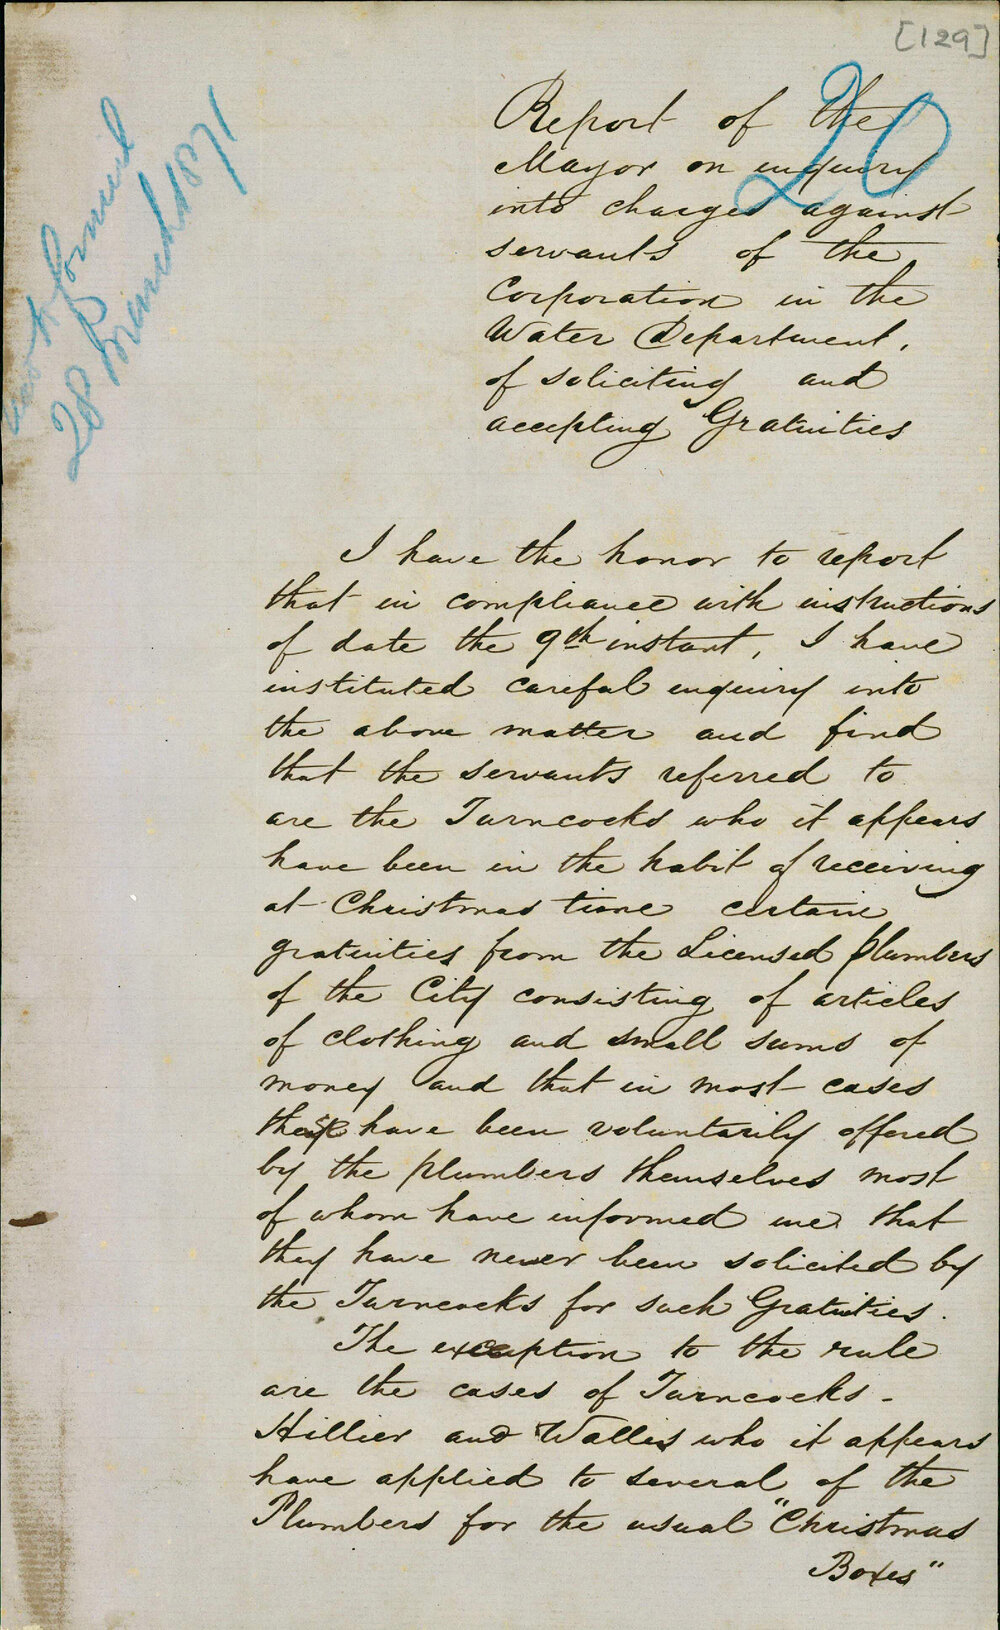 [129]
20
28 March 1871
Report of the
Mayor on inquiry
into charges against
servants of the
Corporation in the
Water Department,
of soliciting and
accepting Gratuities
I have the honor to report
that in compliance with instructions
of date the 9th instant, I have
instituted careful enquiry into
the above matter and find
that the servants referred to
are the Turncocks who it appears
have been in the habit of receiving
at Christmas time certain
gratuities from the Licensed plumbers
of the City consisting of articles
of clothing and small sums of
money and that in most cases
these have been voluntarily offered
by the plumbers themselves most
of whom have informed me that
they have never been solicited by
the Turncocks for such Gratuities.
The exception to the rule
are the cases of Turncocks -
Hillier and Wallis who it appears
have applied to several of the
Plumbers for the usual "Christmas
Boxes"